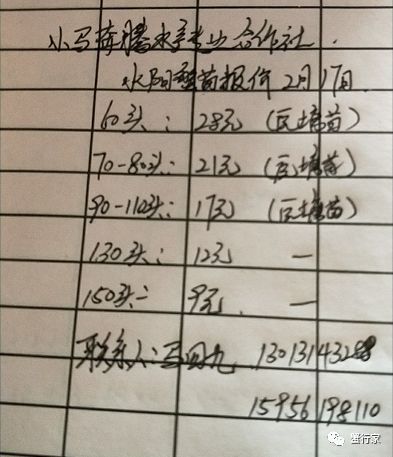 小马奔腾水产专业合作社.
水阳蟹苗报价 2月17日.
60头: 28元 (瓦埠苗)
70-80头: 21元 (瓦埠苗)
90-110头: 17元 (瓦埠苗)
130头: 12元 —
150头: 9元. —
联系人: 马四九 1301314328
15956198110
蟹行家